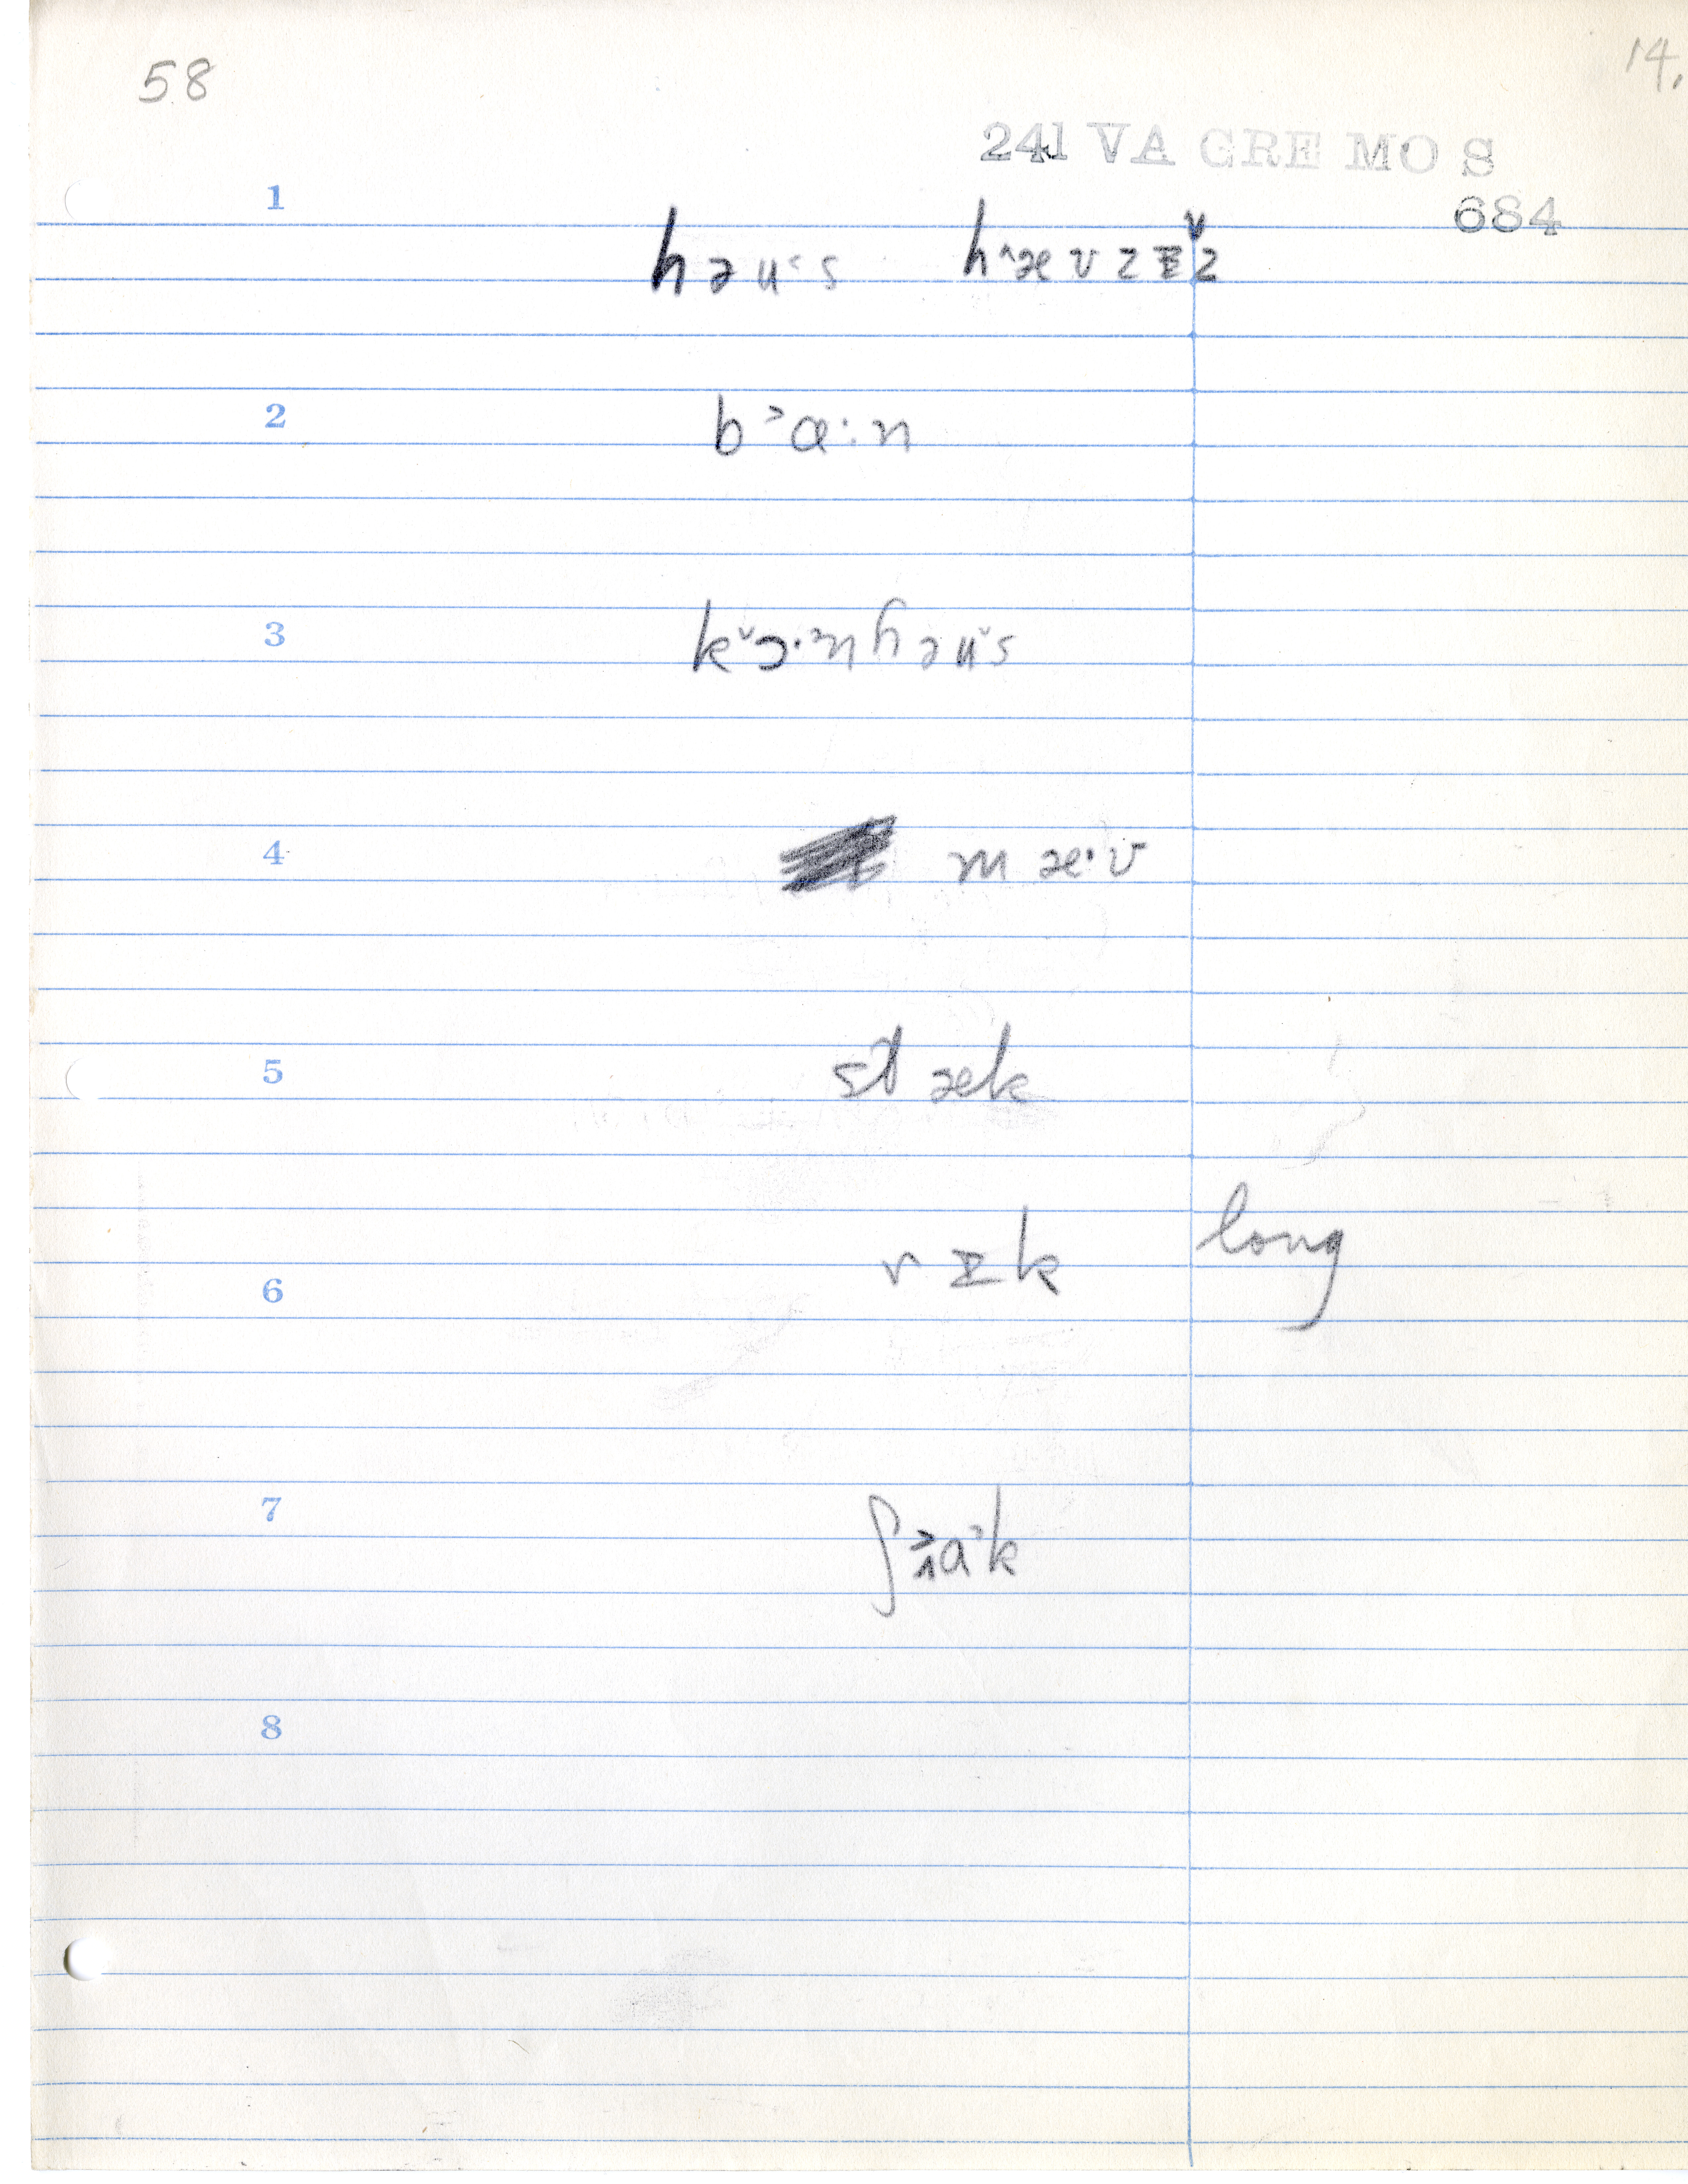 58
14.
241 VA GRE MO S
684
1 həu˂s h˄ævzɪ̵˅z
2 b˃ɑ:n
3 k˅ɔ·ənhəu˅s
4 mæ·v
5 stæk
6 rɪ̵k long
7 ʃa˃k
8